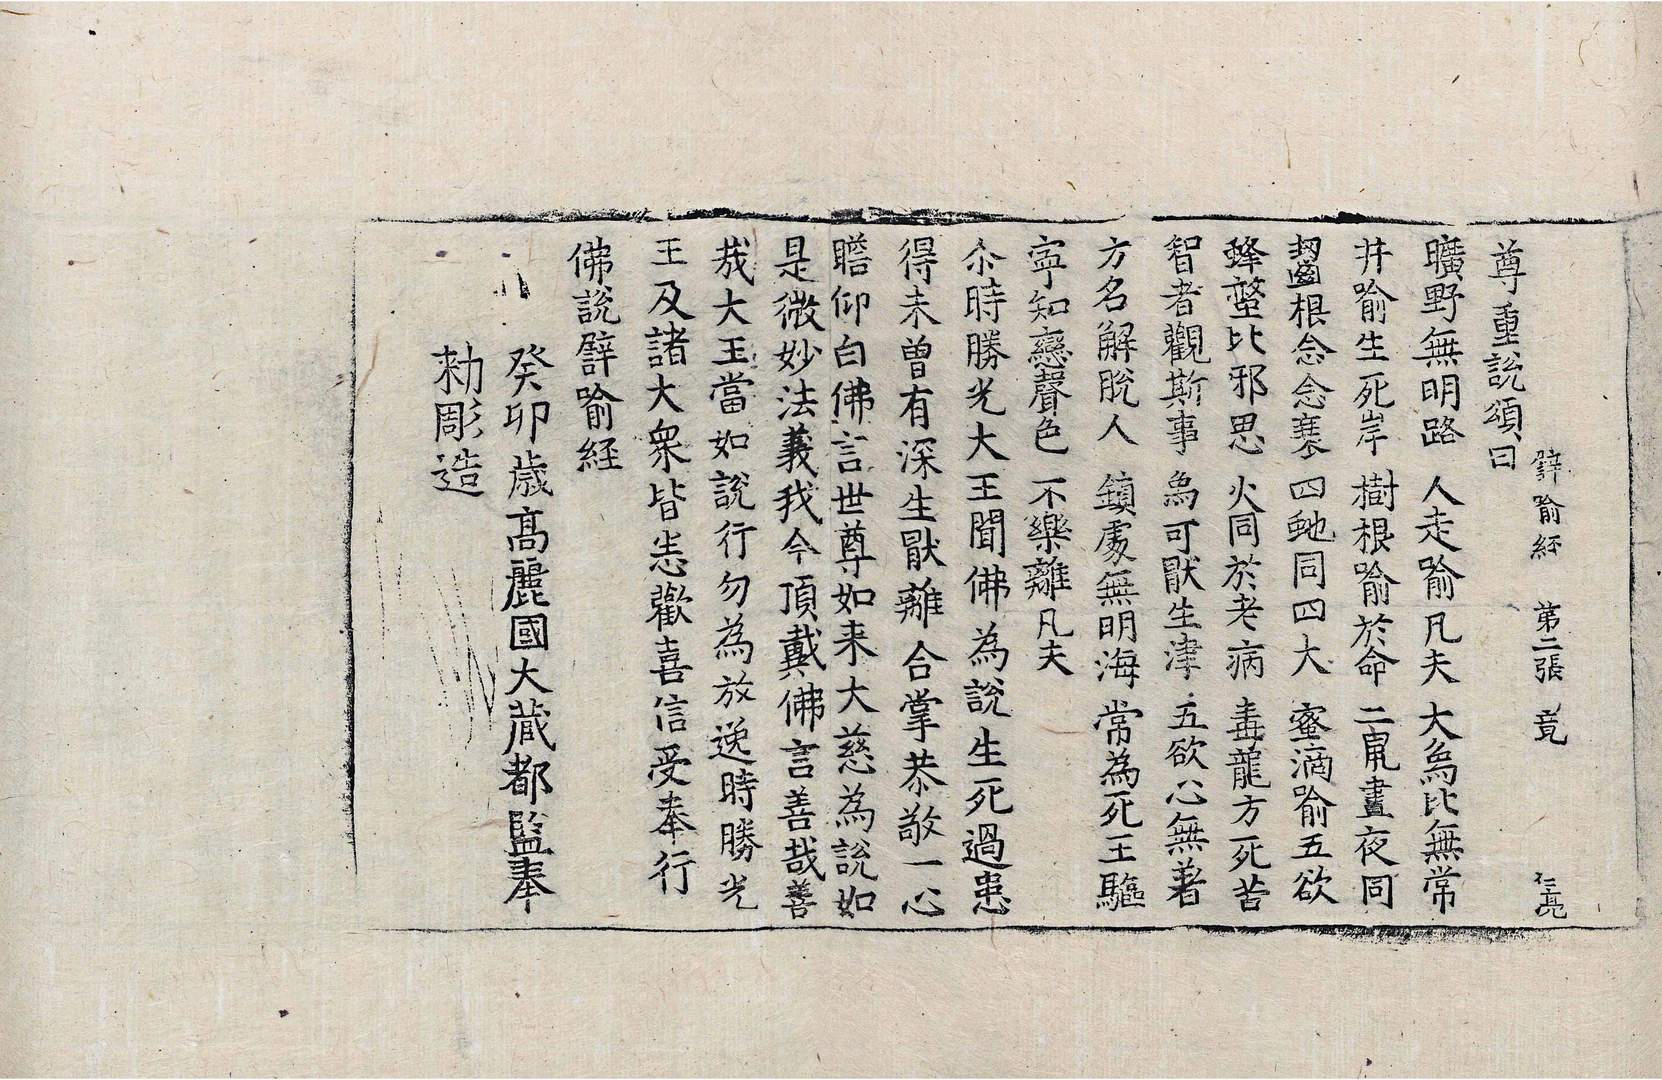 譬喻經　第二張　竟
尊重說頌曰
曠野無明路　人走喻凡夫　大象比無常
井喻生死岸　樹根喻於命　二鼠晝夜同
齧根念念衰　四虵同四大　蜜滴喻五欲
蜂螫比邪思　火同於老病　毒龍方死苦
智者觀斯事　象可厭生津　五欲心無著
方名解脫人　鎮處無明海　常為死王驅
寧知戀聲色　不樂離凡夫
尒時勝光大王聞佛為說生死過患
得未曾有深生厭離合掌恭敬一心
瞻仰白佛言世尊如来大慈為說如
是微妙法義我今頂戴佛言善哉善
哉大王當如說行勿為放逸時勝光
王及諸大衆皆悉歡喜信受奉行
佛說譬喻経
癸卯歳高麗國大藏都監奉
勑彫造